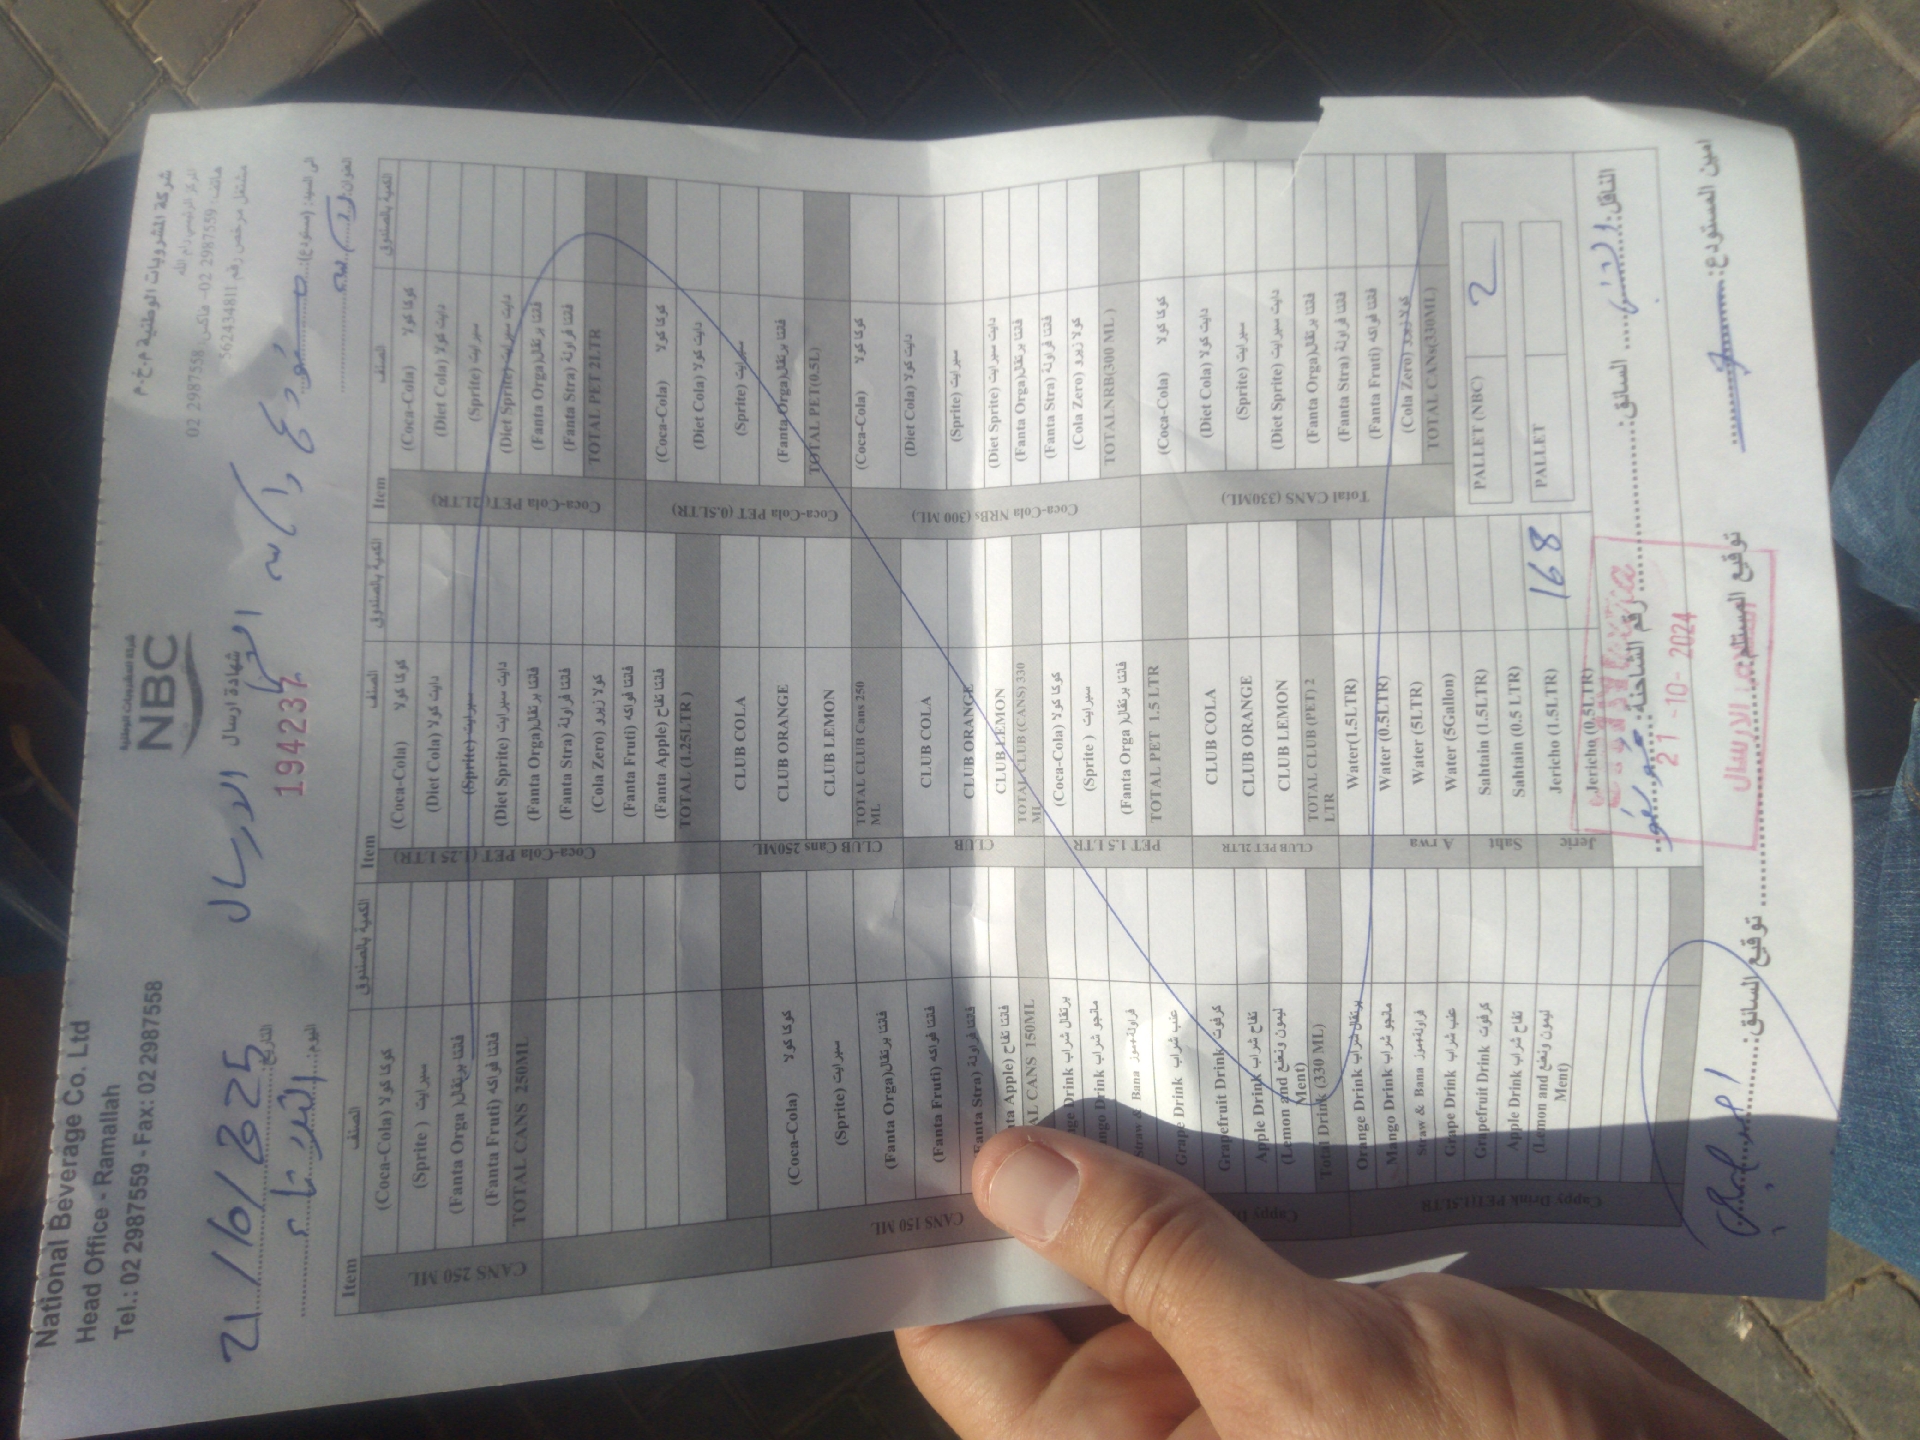 National Beverage Co. Ltd
Head Office - Ramallah
Tel.: 02 2987559 - Fax: 02 2987558
شركة المشروبات الوطنية
NBC
شركة المشروبات الوطنية م.خ.م
المركز الرئيسي رام الله
هاتف: 2987559 02- فاكس: 2987558 02
مشتغل مرخص رقم 562434811
شهادة ارسال
194237
التاريخ:
اليوم: الثلاثاء
الى السيد: (مستودع)
العنوان:
Item الصنف الكمية بالصندوق
CANS 250 ML
(Coca-Cola) كوكا كولا
(Sprite ) سبرايت
(Fanta Orga )فانتا برتقال
(Fanta Fruti) فانتا فواكه
TOTAL CANS 250ML
CANS 150 ML
(Coca-Cola) كوكا كولا
(Sprite) سبرايت
(Fanta Orga)فانتا برتقال
(Fanta Fruti) فانتا فواكه
(Fanta Stra) فانتا فراولة
nta Apple) فانتا تفاح
AL CANS 150ML
nge Drink برتقال شراب
ango Drink مانجو شراب
Straw & Bana فراولة+موز
Grape Drink عنب شراب
Grapefruit Drink كرفوت
Apple Drink تفاح شراب
(Lemon and ليمون ونعنع
Ment)
Total Drink (330 ML)
Cappy Drink PET(1.5LTR
Orange Drink برتقال شراب
Mango Drink مانجو شراب
Straw & Bana فراولة+موز
Grape Drink عنب شراب
Grapefruit Drink كرفوت
Apple Drink تفاح شراب
(Lemon and ليمون ونعنع
Ment)
Item الصنف الكمية بالصندوق
Coca-Cola PET (1.25 LTR)
(Coca-Cola) كوكا كولا
(Diet Cola) دايت كولا
(Sprite) سبرايت
(Diet Sprite) دايت سبرايت
(Fanta Orga)فانتا برتقال
(Fanta Stra) فانتا فراولة
(Cola Zero) كولا زيرو
(Fanta Fruti) فانتا فواكه
(Fanta Apple) فانتا تفاح
TOTAL (1.25LTR )
CLUB Cans 250ML
CLUB COLA
CLUB ORANGE
CLUB LEMON
TOTAL CLUB Cans 250
ML
CLUB
CLUB COLA
CLUB ORANGE
CLUB LEMON
TOTAL CLUB (CANS) 330
ML
PET 1.5 LTR
(Coca-Cola) كوكا كولا
(Sprite ) سبرايت
(Fanta Orga )فانتا برتقال
TOTAL PET 1.5 LTR
CLUB PET 2LTR
CLUB COLA
CLUB ORANGE
CLUB LEMON
TOTAL CLUB (PET) 2
LTR
Arwa
Water(1.5LTR)
Water (0.5LTR)
Water (5LTR)
Water (5Gallon)
Saht
Sahtain (1.5LTR)
Sahtain (0.5 LTR)
Jeric
Jericho (1.5LTR) 168
Jericho (0.5LTR)
Item الصنف الكمية بالصندوق
Coca-Cola PET(2LTR)
(Coca-Cola) كوكا كولا
(Diet Cola) دايت كولا
(Sprite) سبرايت
(Diet Sprite) دايت سبرايت
(Fanta Orga)فانتا برتقال
(Fanta Stra) فانتا فراولة
TOTAL PET 2LTR
Coca-Cola PET (0.5LTR)
(Coca-Cola) كوكا كولا
(Diet Cola) دايت كولا
(Sprite) سبرايت
(Fanta Orga)فانتا برتقال
TOTAL PET(0.5L)
Coca-Cola NRBs (300 ML)
(Coca-Cola) كوكا كولا
(Diet Cola) دايت كولا
(Sprite) سبرايت
(Diet Sprite) دايت سبرايت
(Fanta Orga)فانتا برتقال
(Fanta Stra) فانتا فراولة
(Cola Zero) كولا زيرو
TOTALNRB(300 ML )
Total CANS (330ML)
(Coca-Cola) كوكا كولا
(Diet Cola) دايت كولا
(Sprite) سبرايت
(Diet Sprite) دايت سبرايت
(Fanta Orga)فانتا برتقال
(Fanta Stra) فانتا فراولة
(Fanta Fruti) فانتا فواكه
(Cola Zero) كولا زيرو
TOTAL CANs(330ML)
PALLET (NBC) 2
PALLET
الناقل: السائق: رقم الشاحنة:
21 -10- 2024
الارسال
امين المستودع: توقيع المستلم: توقيع السائق: